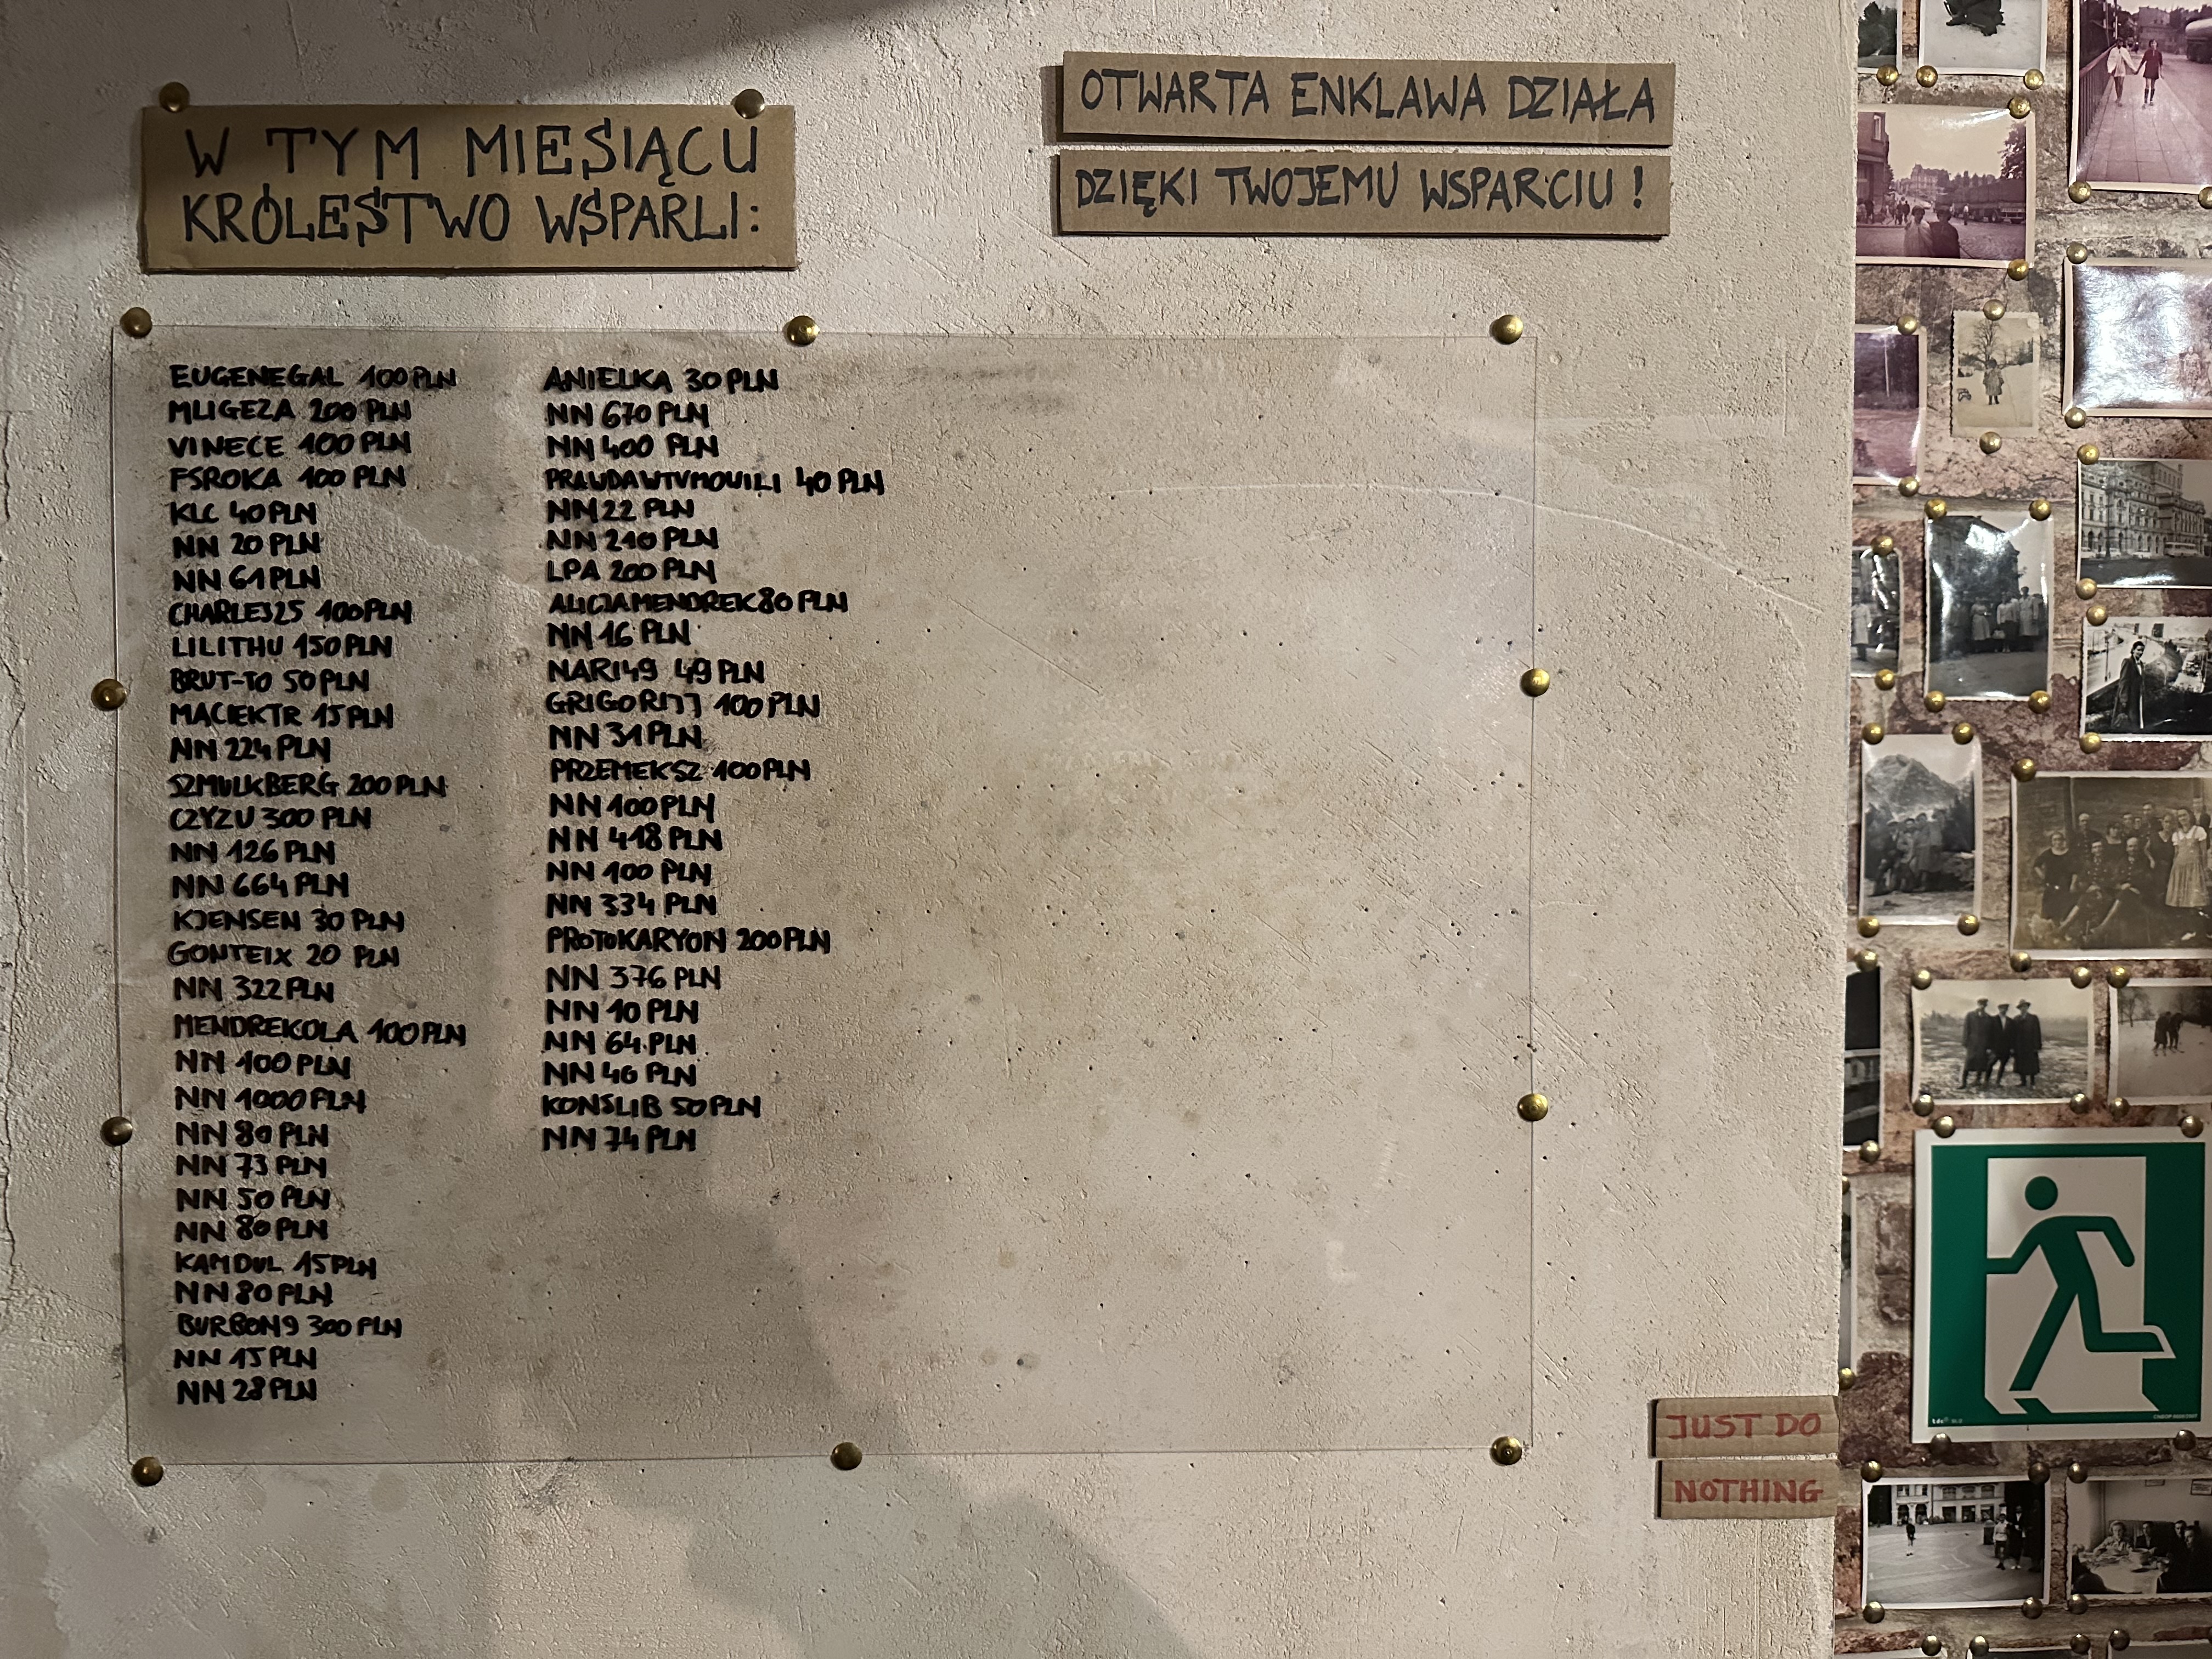 W TYM MIESIĄCU
KRÓLESTWO WSPARLI:
OTWARTA ENKLAWA DZIAŁA
DZIĘKI TWOJEMU WSPARCIU!
EUGENEGAL 100 PLN
MLIGEZA 200 PLN
VINECE 100 PLN
FSROKA 100 PLN
KLC 40 PLN
NN 20 PLN
NN 61 PLN
CHARLES25 100 PLN
LILITHU 150 PLN
BRUT-TO 50 PLN
MACIEKTR 15 PLN
NN 224 PLN
SZMULKBERG 200 PLN
CZYZU 300 PLN
NN 126 PLN
NN 664 PLN
KJENSEN 30 PLN
GONTEIX 20 PLN
NN 322 PLN
MENDREKOLA 100 PLN
NN 100 PLN
NN 1000 PLN
NN 80 PLN
NN 73 PLN
NN 50 PLN
NN 80 PLN
KAMDUL 15 PLN
NN 80 PLN
BURBON9 300 PLN
NN 15 PLN
NN 28 PLN
ANIELKA 30 PLN
NN 670 PLN
NN 400 PLN
40 PLN
NN 22 PLN
NN 210 PLN
LPA 200 PLN
ALICJAMENDREK 80 PLN
NN 16 PLN
NARI49 49 PLN
GRIGORIJJ 100 PLN
NN 31 PLN
PRZEMEKSZ 100 PLN
NN 100 PLN
NN 418 PLN
NN 100 PLN
NN 334 PLN
PROTOKARYON 200 PLN
NN 376 PLN
NN 10 PLN
NN 64 PLN
NN 46 PLN
KONSLIB 50 PLN
NN 74 PLN
JUST DO
NOTHING